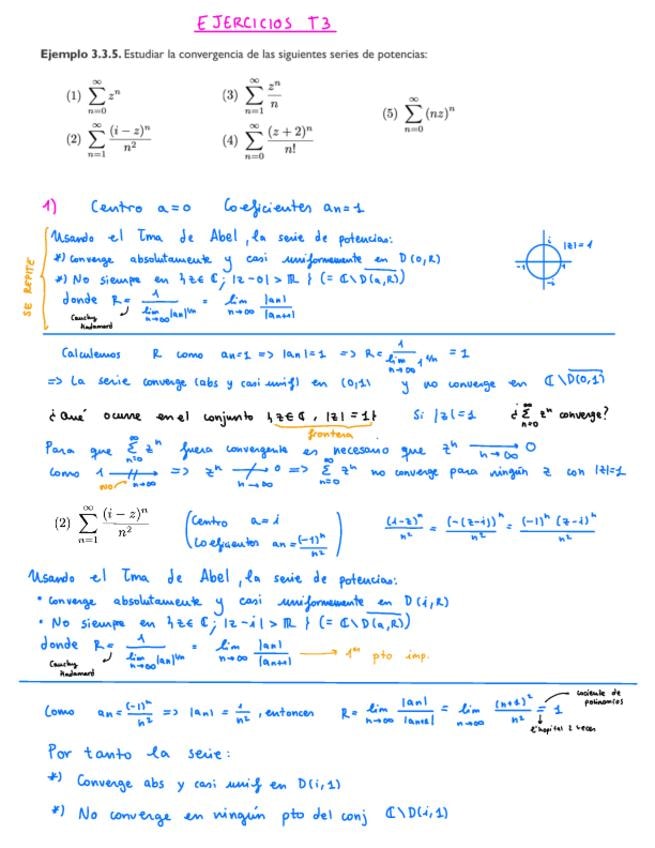 EJERCICIOS T3
Ejemplo 3.3.5. Estudiar la convergencia de las siguientes series de potencias:
(1) ∑_{n=0}^{∞} z^n (3) ∑_{n=1}^{∞} z^n/n (5) ∑_{n=0}^{∞} (nz)^n
(2) ∑_{n=1}^{∞} (i − z)^n/n^2 (4) ∑_{n=0}^{∞} (z + 2)^n/n!
1) Centro a=0 Coeficientes an=1
SE REPITE
Usando el Tma de Abel, la serie de potencias:
*) Converge absolutamente y casi uniformemente en D(0,R)
*) No siempre en {z∈ℂ; |z-0| > R} (= ℂ\D(a,R))
donde R = 1/lim_{n→∞}|an|^{1/n} = lim_{n→∞} |an|/|an+1|
Cauchy Hadamard
i |z|=1
-1 1
-i
Calculemos R como an=1 => |an|=1 => R = 1/lim_{n→∞} 1^{1/n} = 1
=> La serie converge (abs y casi unif) en (0,1) y no converge en ℂ\D(0,1)
¿Qué ocurre en el conjunto {z∈ℂ, |z|=1} Si |z|=1 ¿∑_{n=0}^{∞} z^n converge?
frontera
Para que ∑_{n=0}^{∞} z^n fuera convergente es necesario que z^n → 0 n→∞
Como 1 ↛ n→∞ => z^n ↛ 0 n→∞ => ∑_{n=0}^{∞} z^n no converge para ningún z con |z|=1
NO
(2) ∑_{n=1}^{∞} (i − z)^n/n^2 (Centro a=i
Coeficientes an = (-1)^n/n^2) (i-z)^n/n^2 = (-(z-i))^n/n^2 = (-1)^n (z-i)^n/n^2
Usando el Tma de Abel, la serie de potencias:
• Converge absolutamente y casi uniformemente en D(i,R)
• No siempre en {z∈ℂ; |z-i| > R} (= ℂ\D(a,R))
donde R = 1/lim_{n→∞}|an|^{1/n} = lim_{n→∞} |an|/|an+1| → 1er pto imp.
Cauchy Hadamard
Como an = (-1)^n/n^2 => |an| = 1/n^2, entonces R = lim_{n→∞} |an|/|an+1| = lim_{n→∞} (n+1)^2/n^2 = 1
cociente de polinomios
L'hopital 2 veces
Por tanto la serie:
*) Converge abs y casi unif en D(i,1)
*) No converge en ningún pto del conj ℂ\D(i,1)